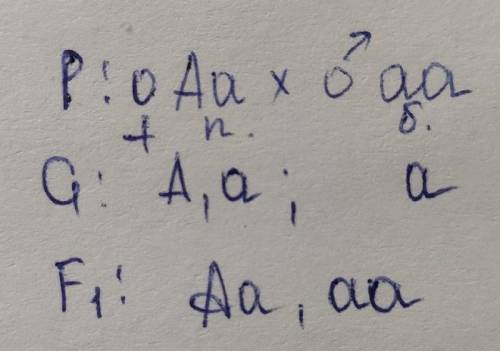 P: ♀ Aa × ♂ aa
п. б.
G: A, a; a
F₁: Aa, aa